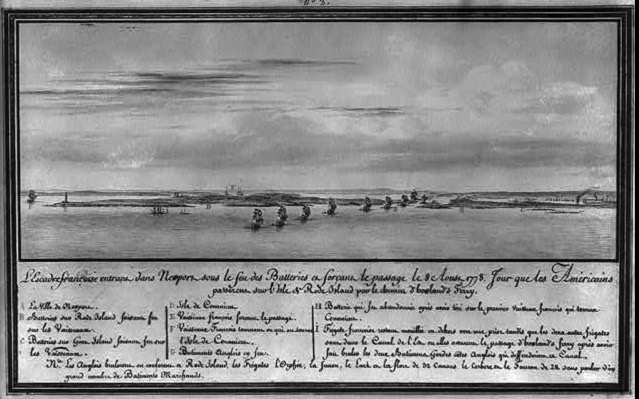 L'Escadre françoise entrant dans Newport sous le feu des Batteries et forçant le passage le 8 Aoust 1778. Jour que les Américains
passèrent sur l'Isle de Rode Island par le chemin d'howland's Ferry.
A La Ville de Newport.
B Batteries sur Rode Island faisant feu
sur les Vaisseaux.
C Batteries sur Goat Island faisant feu sur
les Vaisseaux.
D Isle de Connonicut.
E Vaisseaux françois forçant le passage.
F Vaisseaux françois
l'Isle de Connonicut.
G Batiments Anglois en feu.
H Batterie qui fut abandonnée après avoir tiré sur le premier vaisseau françois qui
Connonicut.
I Frégate françoise restant mouillée en dehors avec une prise, tandis que les deux autres frégates
sont dans le Canal de l'Est ou elles assurent le passage d'howland's ferry après avoir
fait bruler les deux Batiments Gardes côtes Anglois qui deffendoient ce Canal.
Nta. Les Anglois brulerent en conséquence a Rode Island, les Frégates l'Orphée, la Junon, le Lark et la flore de 32 Canons le Cerbere et le Faucon de 28. sans parler d'un
grand nombre de Batiments Marchands.